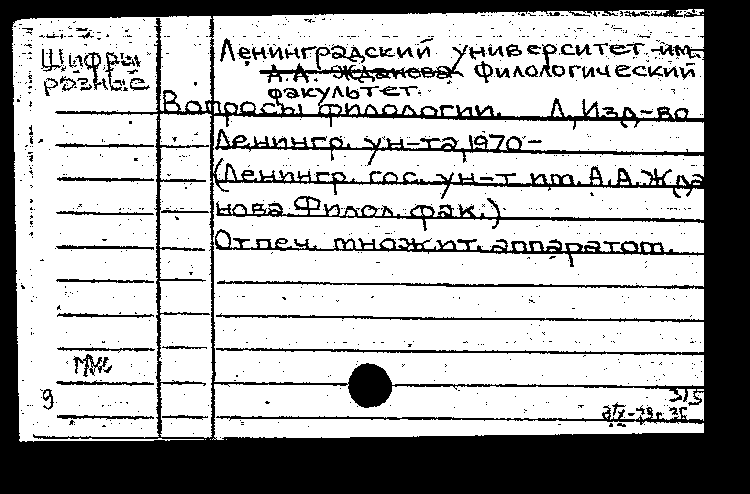 Шифры
разные
Ленинградский университет им.
А.А. Жданова Филологический
факультет.
Вопросы филологии. Л., Изд-во
Ленингр. ун-та, 1970-
(Ленингр. гос. ун-т им. А.А. Жда
нова. Филол. фак.)
Отпеч. множит. аппаратом.
9